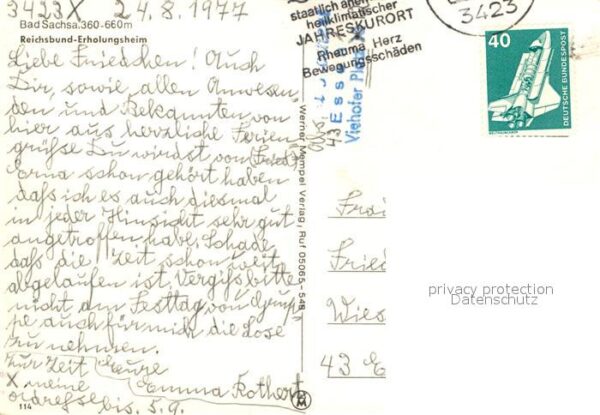 3423 X 24.8.1977
Bad Sachsa. 360-660m
Reichsbund-Erholungsheim
Liebe Friedchen! Auch
Dir, sowie allen Anwesen
den und Bekannten von
hier aus herzliche Ferien
grüße Du wirdst von (Fried)
Erna schon gehört haben
daß ich es auch diesmal
in jeder Hinsicht sehr gut
angetroffen habe. Schade,
daß die Zeit schon weit
abgelaufen ist. Vergiß bitte
nicht am Festtag von
auch für mich die Lose
zu nehmen.
Zur Zeit
X meine Emma Rothert
Adresse bis. 5.9.
114
Werner Mempel Verlag, Ruf 05065-548
M
staatlich aner
heilklimatischer
JAHRESKURORT
Rheuma Herz
Bewegungsschäden
3423
Abs.
43 Esse
Viehofer Pla
40
DEUTSCHE BUNDESPOST
Fra
Fried
Wies
43 E
privacy protection
Datenschutz